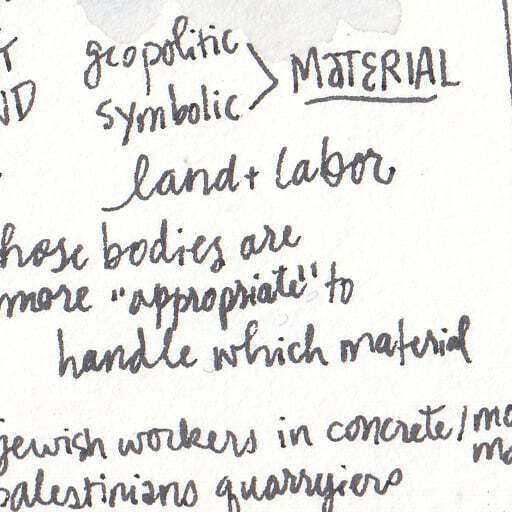 geopolitic
symbolic > MATERIAL
land + labor
hose bodies are
more "appropriate" to
handle which material
jewish workers in concrete /
palestinians quarryiers